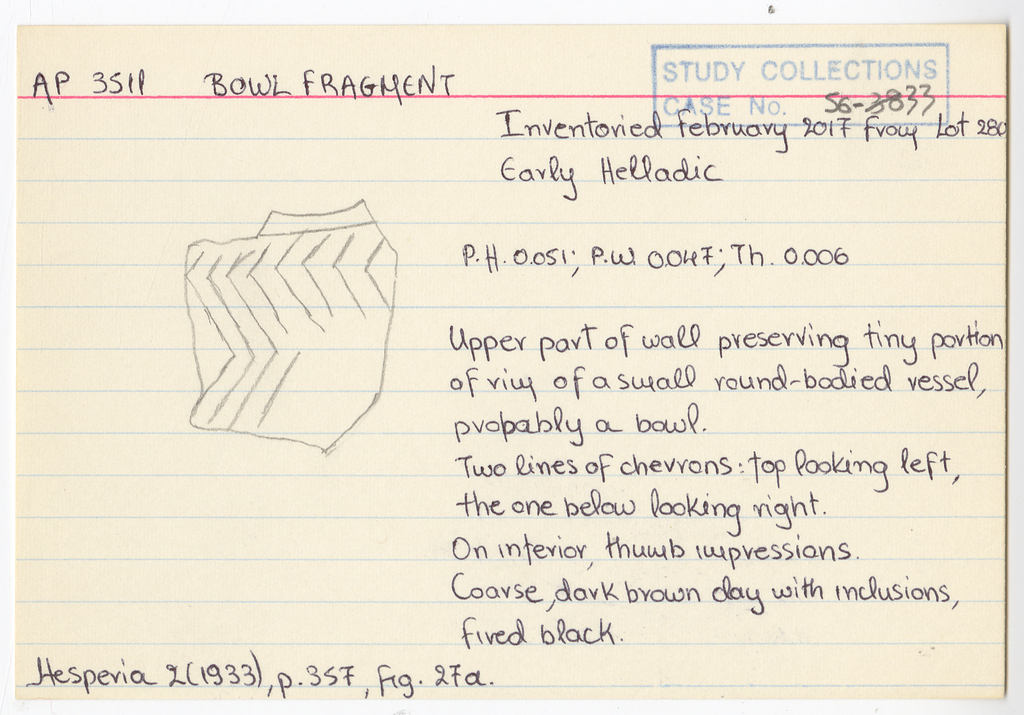 AP 3511 BOWL FRAGMENT
STUDY COLLECTIONS
CASE No. 56-3833
Inventoried February 2017 from Lot 280
Early Helladic
P.H. 0.051; P.W. 0.047; Th. 0.006
Upper part of wall preserving tiny portion
of rim of a small round-bodied vessel,
probably a bowl.
Two lines of chevrons: top looking left,
the one below looking right.
On interior, thumb impressions.
Coarse, dark brown clay with inclusions,
fired black.
Hesperia 2(1933), p. 357, fig. 27a.